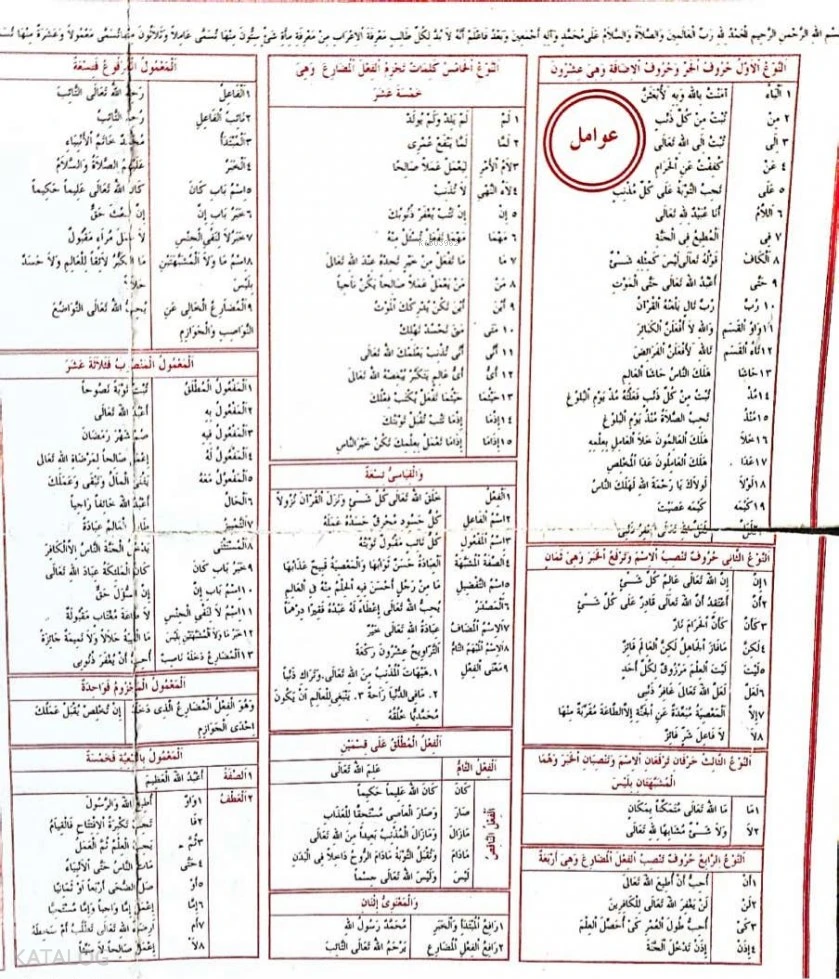 بسم الله الرحمن الرحيم الحمد لله رب العالمين والصلاة والسلام على محمد وآله أجمعين وبعد فاعلم أنه لا بد لكل طالب معرفة الإعراب من معرفة مائة شئ ستون منها تسمى عاملا وثلاثون منها تسمى معمولا وعشرة منها
النوع الأول حروف الجر وحروف الاضافة وهى عشرون
عوامل
١ الباء آمنت بالله وبه لأبعثن
٢ من تبت من كل ذنب
٣ إلى تبت الى الله تعالى
٤ عن كففت عن الحرام
٥ على تجب التوبة على كل مذنب
٦ اللام أنا عبيد لله تعالى
٧ فى المطيع فى الجنة
٨ الكاف قوله تعالى ليس كمثله شئ
٩ حتى أعبد الله تعالى حتى الموت
١٠ رب رب تال يلعنه القرآن
١١ واو القسم والله لا أفعلن الكبائر
١٢ تاء القسم تالله لأفعلن الفرائض
١٣ حاشا هلك الناس حاشا العالم
١٤ مذ تبت من كل ذنب فعلته مذ يوم البلوغ
١٥ منذ تجب الصلاة منذ يوم البلوغ
١٦ خلا هلك العالمون خلا العامل بعلمه
١٧ عدا هلك العاملون عدا المخلص
١٨ لولا لولاك يا رحمة الله لهلك الناس
١٩ كيمه كيمه عصيت
النوع الثانى حروف تنصب الاسم وترفع الخبر وهى ثمان
١ إن إن الله تعالى عالم كل شئ
٢ أن أعتقد أن الله تعالى قادر على كل شئ
٣ كأن كأن الحرام نار
٤ لكن مافاز الجاهل لكن العالم فائز
٥ ليت ليت العلم مرزوق لكل أحد
٦ لعل لعل الله تعالى غافر ذنبى
٧ إلا المعصية مبعدة عن الجنة إلا الطاعة مقربة منها
٨ لا لا فاعل شر فائز
النوع الثالث حرفان ترفعان الاسم وتنصبان الخبر وهما
المشبهتان بليس
١ ما ما الله تعالى متمكنا بمكان
٢ لا ولا شئ مشابها لله تعالى
النوع الرابع حروف تنصب الفعل المضارع وهى أربعة
١ أن أحب أن أطيع الله تعالى
٢ لن لن يغفر الله تعالى للكافرين
٣ كى أحب طول العمر كى أحصل العلم
٤ إذن إذن تدخل الجنة
النوع الخامس كلمات تجزم الفعل المضارع وهى
خمسة عشر
١ لم لم يلد ولم يولد
٢ لما لما ينفع عمرى
٣ لام الأمر ليعمل عملا صالحا
٤ لاء النهى لا تذنب
٥ إن إن تتب يغفر ذنوبك
٦ مهما مهما تفعل تسئل منه
٧ ما ما تفعل من خير تجده عند الله تعالى
٨ من من يعمل عملا صالحا يكن ناجيا
٩ أين أين تكن يدركك الموت
١٠ متى متى تحسد تهلك
١١ أنى أنى تذنب يعلمك الله تعالى
١٢ أى أى عالم يتكبر يبغضه الله تعالى
١٣ حيثما حيثما تفعل يكتب فعلك
١٤ إذما إذما تتب تقبل توبتك
١٥ إذاما إذاما تعمل بعلمك تكن خير الناس
والقياسى تسعة
١ الفعل خلق الله تعالى كل شئ ونزل القرآن نزولا
٢ اسم الفاعل كل حسود محرق حسده عمله
٣ اسم المفعول كل تائب مقبول توبته
٤ الصفة المشبهة العبادة حسن ثوابها والمعصية قبيح عذابها
٥ اسم التفضيل ما من رجل أحسن فيه الحلم منه فى العالم
٦ المصدر يحب الله تعالى إعطاء له عبده فقيرا درهما
٧ الاسم المضاف عبادة الله تعالى خير
٨ الاسم المبهم التام التراويح عشرون ركعة
٩ معنى الفعل ١. هيهات المذنب من الله تعالى. وتراك ذنبا
٢. مافى الدنيا راحة ٣. ينبغى للعالم أن يكون
محمديا خلقه
الفعل المطلق على قسمين
الفعل التام علم الله تعالى
الفعل الناقص
كان كان الله عليما حكيما
صار وصار العاصى مستحقا للعذاب
مازال ومازال المذنب بعيدا من الله تعالى
مادام وتقبل التوبة مادام الروح داخلا فى البدن
ليس وليس الله تعالى جسما
والمعنوى إثنان
١ رافع المبتدأ والخبر محمد رسول الله
٢ رافع الفعل المضارع يرحم الله تعالى التائب
المعمول المرفوع فتسعة
١ الفاعل رحم الله تعالى التائب
٢ نائب الفاعل رحم التائب
٣ المبتدأ محمد خاتم الأنبياء
٤ الخبر عليهم الصلاة والسلام
٥ اسم باب كان كان الله تعالى عليما حكيما
٦ خبر باب إن إن البعث حق
٧ خبر لا لنفى الجنس لا عمل مراء مقبول
٨ اسم ما ولا المشبهتين ما الكبر لائقا للعالم ولا حسد
بليس حلالا
٩ المضارع الخالى عن يحب الله تعالى التواضع
النواصب والجوازم
المعمول المنصوب فثلاثة عشر
١ المفعول المطلق تبت توبة نصوحا
٢ المفعول به أعبد الله تعالى
٣ المفعول فيه صم شهر رمضان
٤ المفعول له إعمل صالحا لمرضاة الله تعالى
٥ المفعول معه يفنى المال وتبقى وعملك
٦ الحال أعبد الله خائفا راجيا
٧ التمييز طاب العالم عبادة
٨ المستثنى يدخل الجنة الناس الا الكافر
٩ خبر باب كان كان الملائكة عباد الله تعالى
١٠ اسم باب إن إن سؤل حق
١١ اسم لا لنفى الجنس لا طاعة مغتاب مقبولة
١٢ خبر ما ولا المشبهتين بليس ما الغيبة حلالا ولا نميمة جائزة
١٣ المضارع دخله ناصب أحب أن يغفر ذنوبى
المعمول المجزوم فواحدة
وهو الفعل المضارع الذى دخله إن تخلص يقبل عملك
إحدى الجوازم
المعمول بالتبعية فخمسة
١ الصفة أعبد الله العظيم
٢ العطف ١ واو أطيع الله والرسول
٢ فا تجب تكبيرة الافتتاح فالقيام
٣ ثم يجب العلم ثم العمل
٤ حتى مات الناس حتى الأنبياء
٥ أو صل الضحى أربعا أو ثمانيا
٦ إما إعمل إما واجبا وإما مستحبا
٧ أم أرضاء الله تعالى تطلب أم سخطه
٨ لا إعمل صالحا لا سيئا
KATALOG